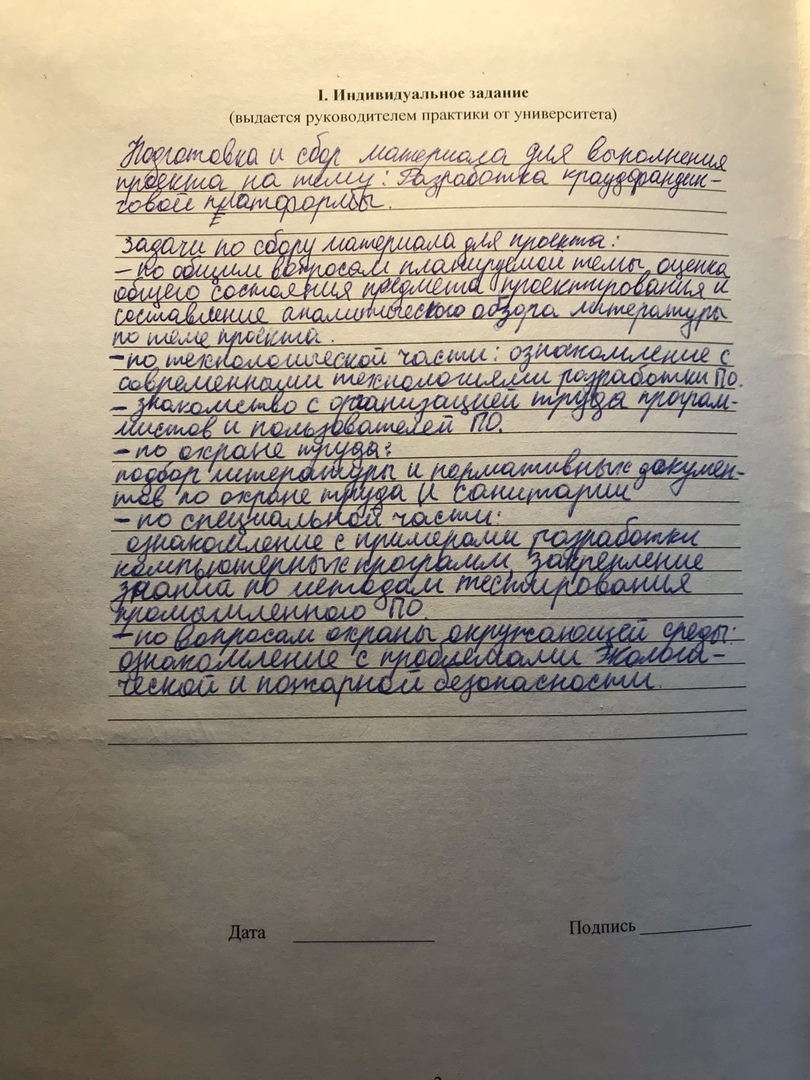 I. Индивидуальное задание
(выдается руководителем практики от университета)
Подготовка и сбор материала для выполнения
проекта на тему: Разработка краудфандин-
говой платформы.
Задачи по сбору материала для проекта:
- по общим вопросам планируемой темы оценка
общего состояния предмета проектирования и
составление аналитического обзора литературы
по теме проекта.
- по технологической части: ознакомление с
современными технологиями разработки ПО.
- знакомство с организацией труда програм-
мистов и пользователей ПО.
- по охране труда:
подбор литературы и нормативных докумен-
тов по охране труда и санитарии
- по специальной части:
ознакомление с примерами разработки
компьютерных программ, закрепление
знаний по методам тестирования
промышленного ПО.
- по вопросам охраны окружающей среды:
ознакомление с проблемами экологи-
ческой и пожарной безопасности.
Дата Подпись